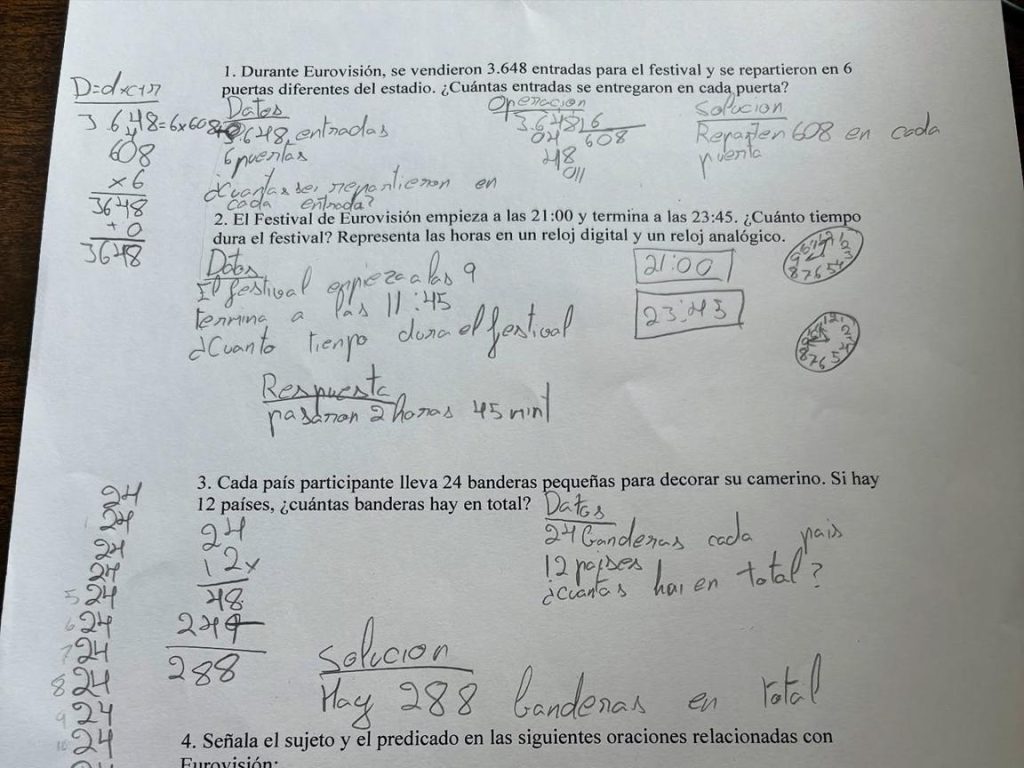 1. Durante Eurovisión, se vendieron 3.648 entradas para el festival y se repartieron en 6
puertas diferentes del estadio. ¿Cuántas entradas se entregaron en cada puerta?
D=d×c+r
3.648=6×608+0
608
×6
3648
+0
3648
Datos
3.648 entradas
6 puertas
¿Cuantas se repartieron en
cada entrada?
Operacion
3.648 6
04 608
48
0
Solucion
Reparten 608 en cada
puerta
2. El Festival de Eurovisión empieza a las 21:00 y termina a las 23:45. ¿Cuánto tiempo
dura el festival? Representa las horas en un reloj digital y un reloj analógico.
Datos
El festival empieza a las 9
termina a las 11:45
¿Cuanto tienpo dura el festival
21:00
23:45
Respuesta
pasaron 2 horas 45 mint
3. Cada país participante lleva 24 banderas pequeñas para decorar su camerino. Si hay
12 países, ¿cuántas banderas hay en total?
24
24
24
24
5 24
6 24
7 24
8 24
9 24
10 24
24
12×
48
24
288
Datos
24 banderas cada pais
12 paises
¿cuantas hai en total?
Solucion
Hay 288 banderas en total
4. Señala el sujeto y el predicado en las siguientes oraciones relacionadas con
Eurovisión: